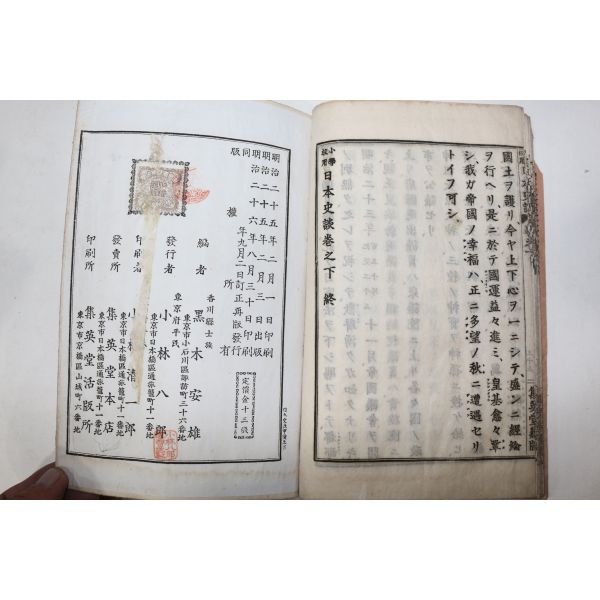 國土ヲ護リ今ヤ上下心ヲ一ニシテ盛ンニ經綸
ヲ行ヘリ是ニ於テ國運益々進ミ皇基愈々鞏
シ我ガ帝國ノ幸福ハ正ニ多望ノ秋ニ遭遇セリ
トイフ可シ
小學校用日本史談卷之下 終
明治二十五年二月一日印刷
明治二十五年二月三日出版
明治二十六年八月三十日印刷
同 年九月二日訂正再版發行
版權所有
定價金十三錢
香川縣士族
編者 黑木安雄
東京市小石川區
三十六番地
東京府平民
發行者 小林八郎
東京市日本橋區通旅籠町十一番地
印刷者 小林清一郎
東京市日本橋區通旅籠町十一番地
發賣所 集英堂本店
東京市日本橋區通旅籠町十一番地
印刷所 集英堂活版所
東京市日本橋區山城町六番地